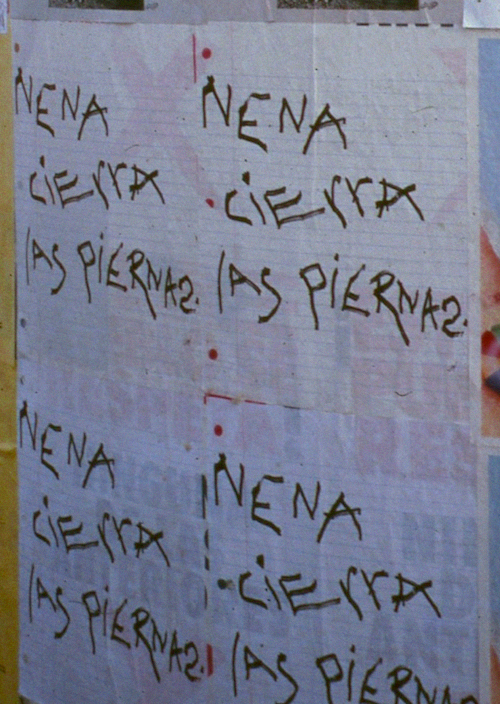 NENA
CIERRA
LAS PIERNAS.
NENA
CIERRA
LAS PIERNAS.
NENA
CIERRA
LAS PIERNAS.
NENA
CIERRA
LAS PIERNAS